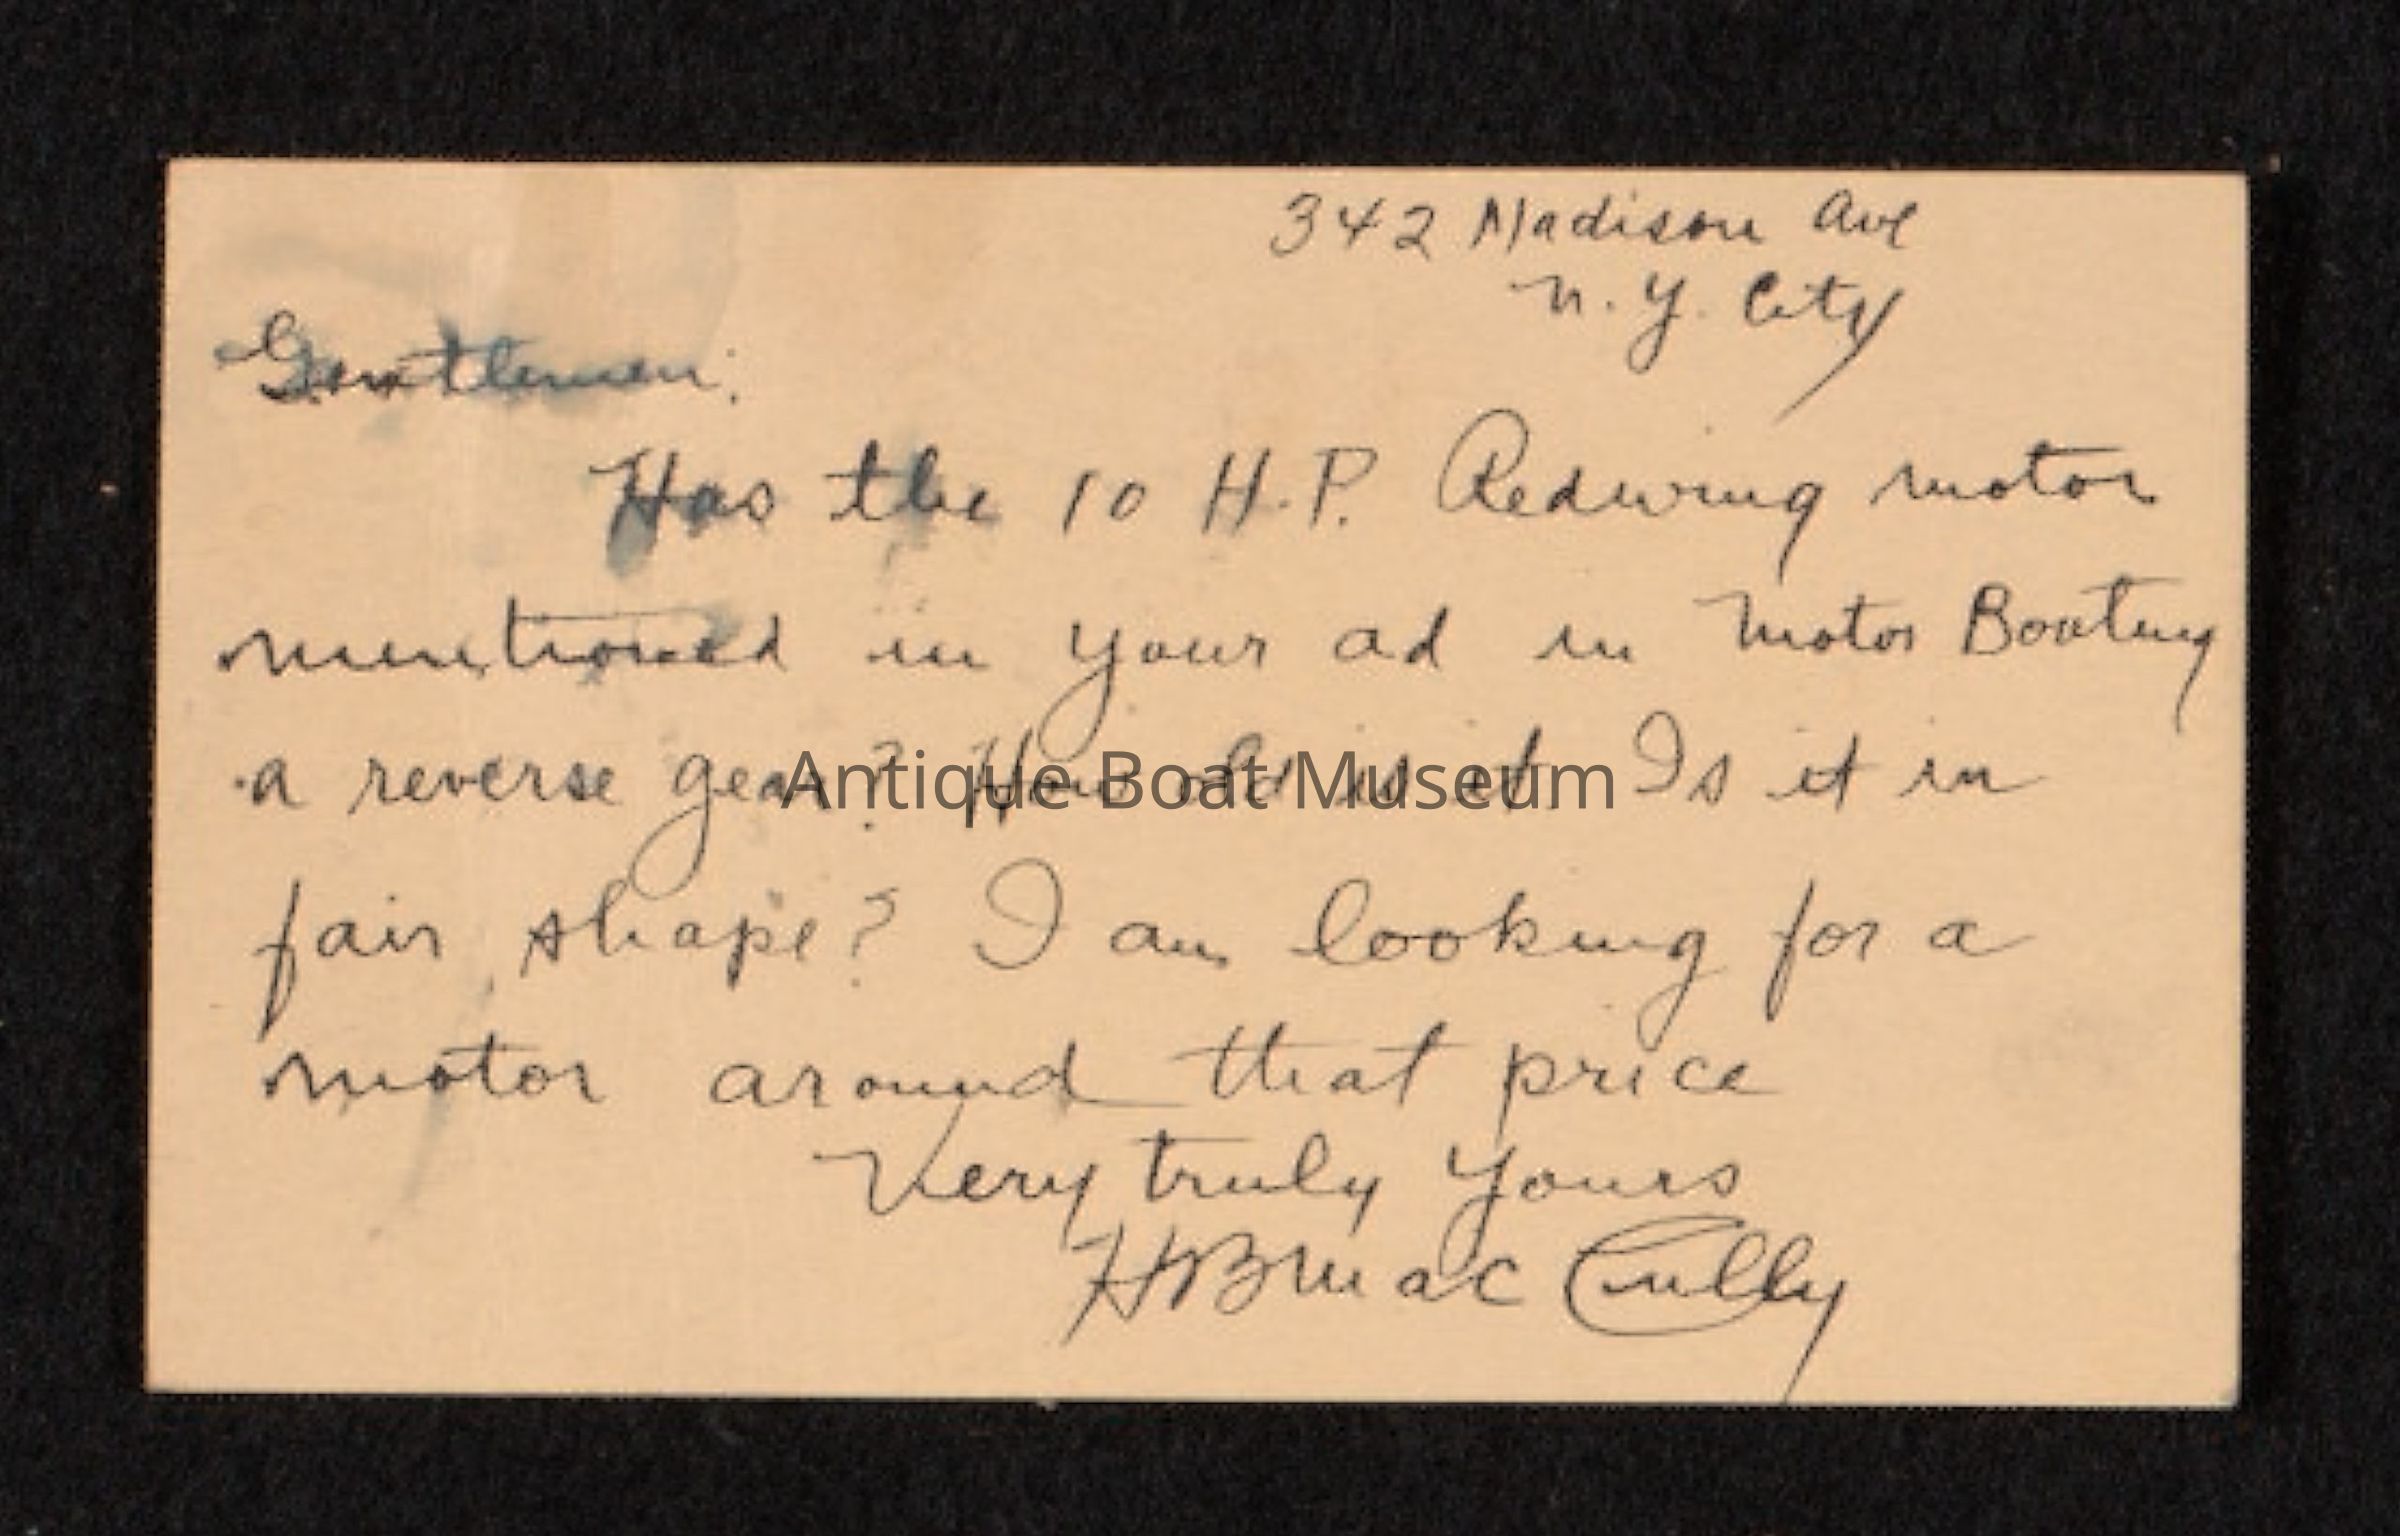 342 Madison Ave
N. Y. City
Gentlemen:
Has the 10 H.P. Redwing motor
mentioned in your ad in Motor Boating
a reverse gear? How old is it. Is it in
Antique Boat Museum
fair shape? I am looking for a
motor around that price
Very truly yours
HB Mac Cully